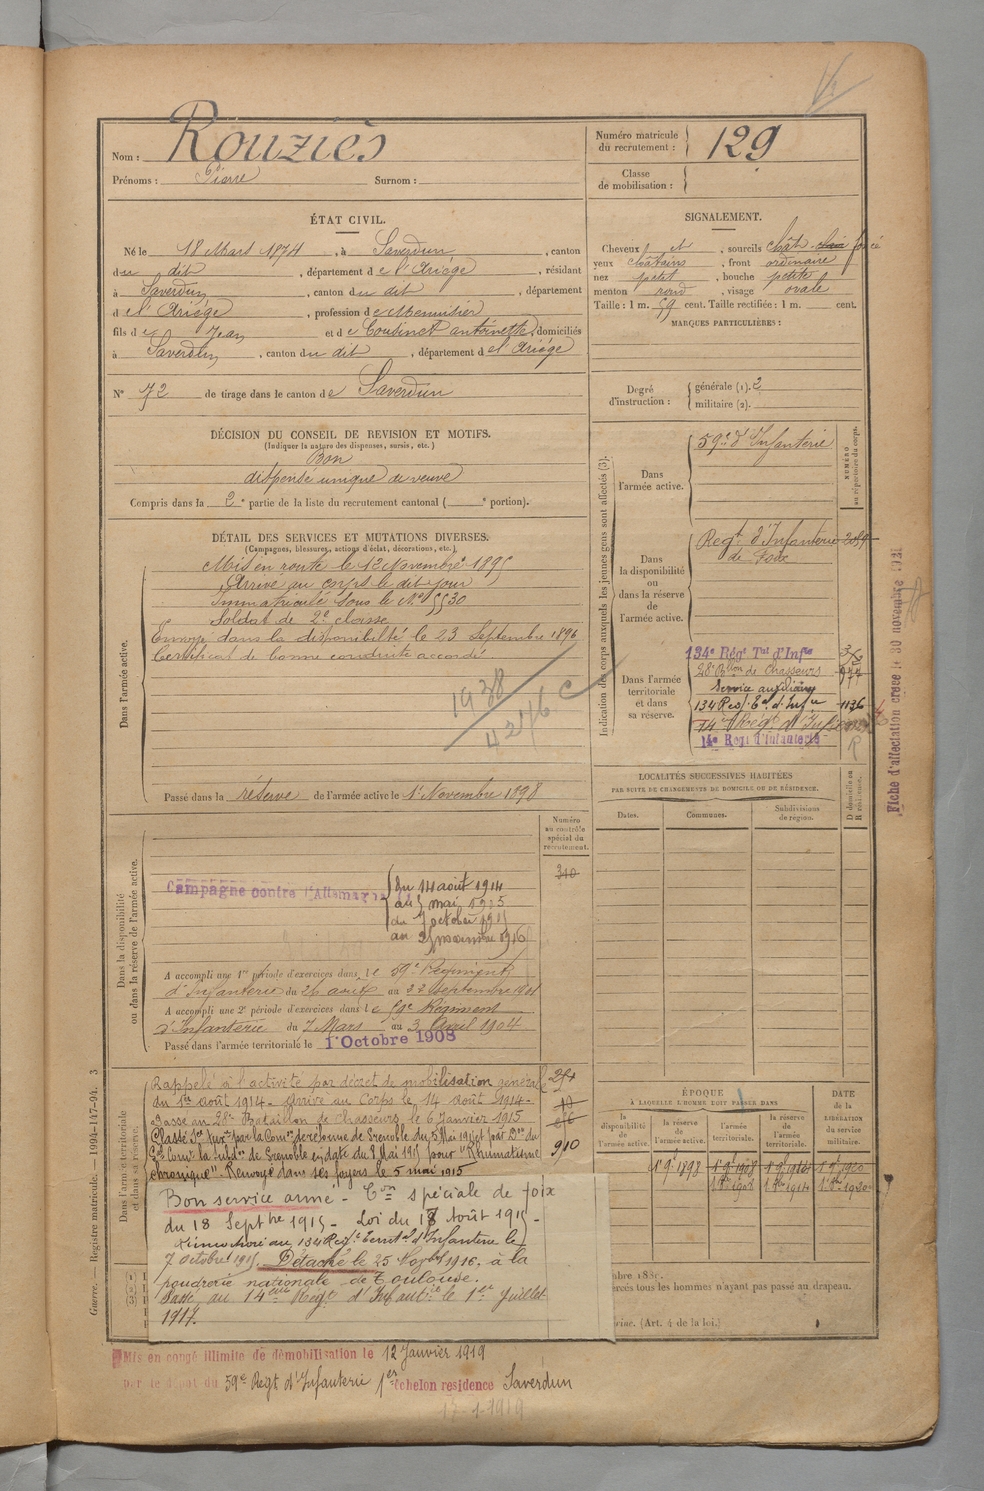 Nom : Rouziès
Prénoms : Pierre Surnom :
Numéro matricule du recrutement : 129
Classe de mobilisation :
ÉTAT CIVIL.
Né le 18 Mars 1874, à Saverdun, canton
du dit, département de l'Ariège, résidant
à Saverdun, canton du dit, département
de l'Ariège, profession de Menuisier
fils de Jean et de Cousinet Antoinette, domiciliés
à Saverdun, canton du dit, département de l'Ariège
N° 72 de tirage dans le canton de Saverdun
SIGNALEMENT.
Cheveux et, sourcils chât. clair foncé
yeux châtains, front ordinaire
nez petit, bouche petite
menton rond, visage ovale
Taille : 1 m. 59 cent. Taille rectifiée : 1 m. cent.
MARQUES PARTICULIÈRES :
Degré d'instruction : générale (1). 2
militaire (2).
DÉCISION DU CONSEIL DE REVISION ET MOTIFS.
(Indiquer la nature des dispenses, sursis, etc.)
Bon
dispensé unique de veuve
Compris dans la 2e partie de la liste du recrutement cantonal ( e portion).
DÉTAIL DES SERVICES ET MUTATIONS DIVERSES.
(Campagnes, blessures, actions d'éclat, décorations, etc.)
Dans l'armée active.
Mis en route le 12 Novembre 1895
Arrivé au corps le dit jour
Immatriculé sous le N° 5530
Soldat de 2e classe
Envoyé dans la disponibilité le 23 Septembre 1896
Certificat de bonne conduite accordé.
1938
4276 C
Passé dans la réserve de l'armée active le 1r Novembre 1898
Indication des corps auxquels les jeunes gens sont affectés (3).
NUMÉRO au répertoire du corps.
Dans l'armée active.
59e d'Infanterie
Dans la disponibilité ou dans la réserve de l'armée active.
Regt d'Infanterie 2089
de Foix
Dans l'armée territoriale et dans sa réserve.
134e Régt Tal d'Infie
28e Bllon de Chasseurs
Service auxiliaire
134 Regt Eal d'Infie 1136
14e Regt d'Infie
14e Regt d'Infanterie
R
Fiche d'affectation créée le 30 novembre 1921
LOCALITÉS SUCCESSIVES HABITÉES
PAR SUITE DE CHANGEMENTS DE DOMICILE OU DE RÉSIDENCE.
Dates. Communes. Subdivisions de région. D domicile ou R résidence.
Numéro au contrôle spécial du recrutement.
310
Dans la disponibilité ou dans la réserve de l'armée active.
Campagne contre l'Allemagne
du 14 août 1914
au 5 mai 1915
du 7 octobre 1915
au 25 novembre 1916
A accompli une 1re période d'exercices dans le 59e Régiment
d'Infanterie du 26 août au 22 septembre 1901
A accompli une 2e période d'exercices dans le 59e Régiment
d'Infanterie du 7 Mars au 3 Avril 1904
Passé dans l'armée territoriale le 1 Octobre 1908
Dans l'armée territoriale et dans sa réserve.
Rappelé à l'activité par décret de mobilisation générale
du 1er août 1914 - Arrivé au Corps le 14 août 1914 -
Passé au 28e Bataillon de Chasseurs le 6 Janvier 1915
chronique". Renvoyé dans ses foyers le 5 mai 1915
910
Bon service armé - Con spéciale de Foix
du 18 Septbre 1915 - Loi du 17 Août 1915 -
Réincorporé au 134 Regt Territal d'Infanterie le
7 octobre 1915. Détaché le 25 Novbre 1916, à la
poudrerie nationale de Toulouse.
Passé au 14ème Régt d'Infantie le 1er Juillet
1917.
ÉPOQUE
À LAQUELLE L'HOMME DOIT PASSER DANS
la disponibilité de l'armée active. la réserve de l'armée active. l'armée territoriale. la réserve de l'armée territoriale.
DATE de la LIBÉRATION du service militaire.
1r 9. 1898
mbre 188
ercés tous les hommes n'ayant pas passé au drapeau.
(Art. 4 de la loi.)
Mis en congé illimité de démobilisation le 12 Janvier 1919
par le dépôt du 59e Regt d'Infanterie 1er échelon résidence Saverdun
17-1-1919
Guerre. — Registre matricule. — 1994-147-94. 3